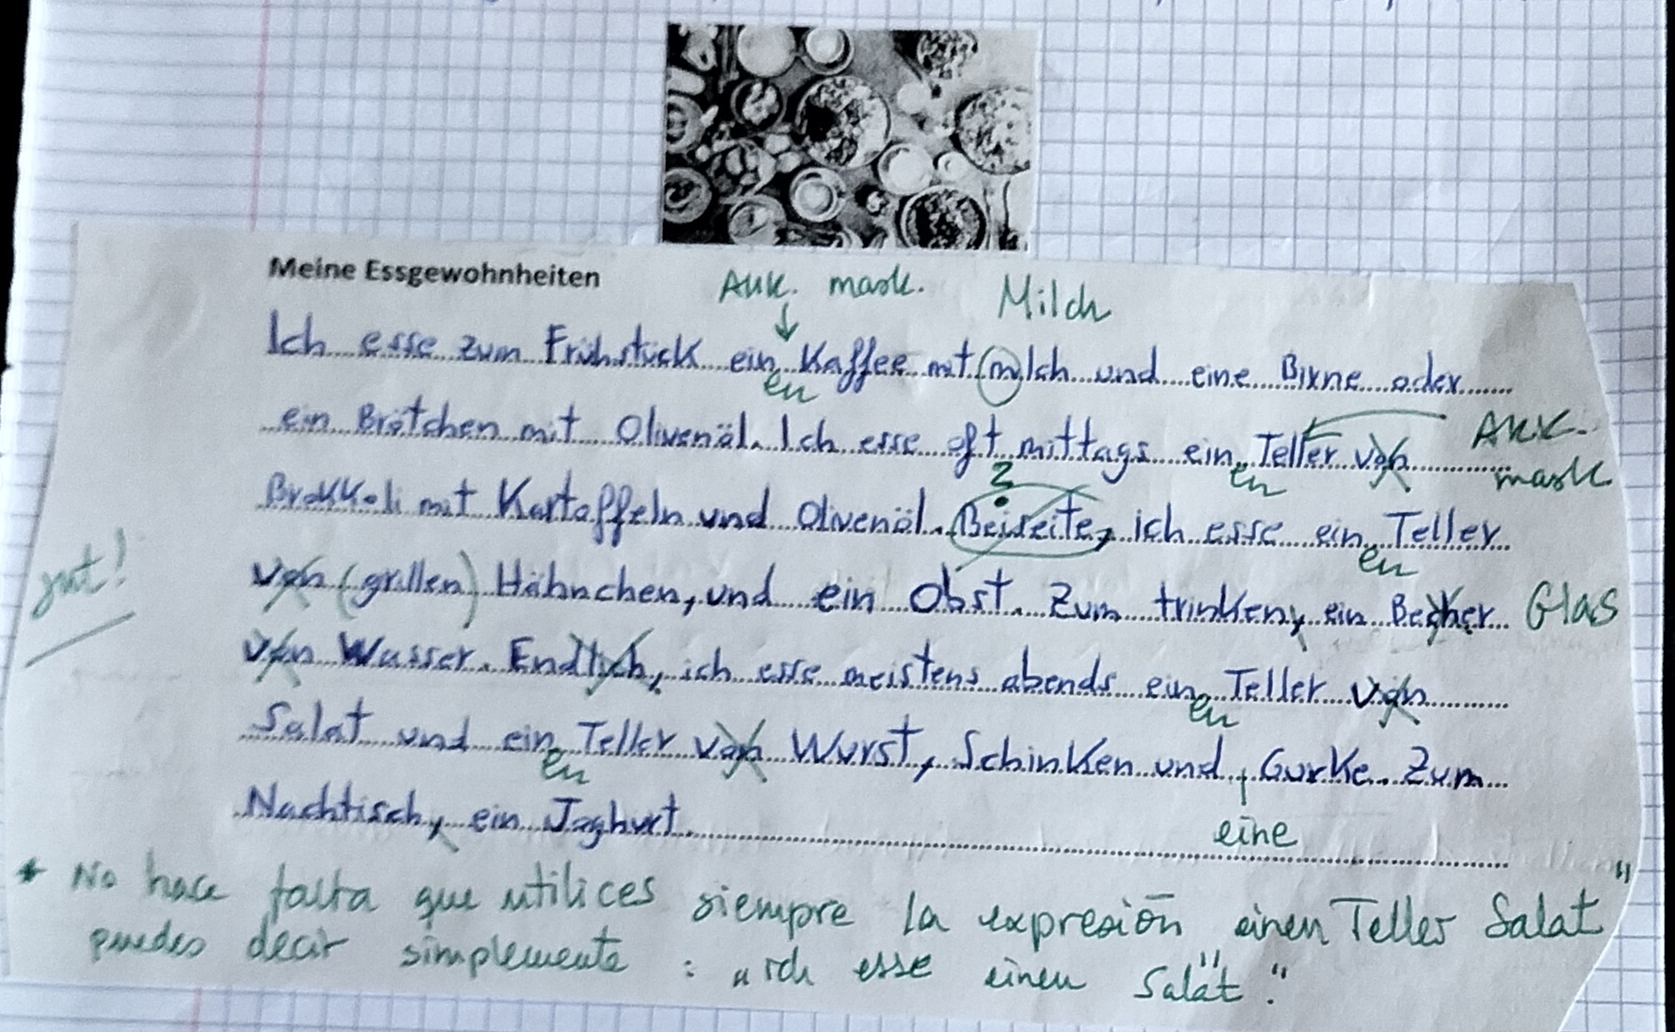 Meine Essgewohnheiten
Akk. mask. Milch
Ich esse zum Frühstück ein Kaffee mit milch und eine Birne oder
en
ein Brötchen mit Olivenöl. Ich esse oft mittags ein Teller von
Akk. mask
en
?
Brokkoli mit Kartoffeln und Olivenöl. Beiseite, ich esse ein Teller
en
gut!
von (grillen) Hähnchen, und ein Obst. Zum trinken, ein Becher Glas
von Wasser. Endlich, ich esse meistens abends ein Teller von
en
Salat und ein Teller von Wurst, Schinken und Gurke. Zum
en
eine
Nachtisch, ein Joghurt.
* No hace falta que utilices siempre la expresión einen Teller Salat"
puedes decir simplemente : "ich esse einen Salat".